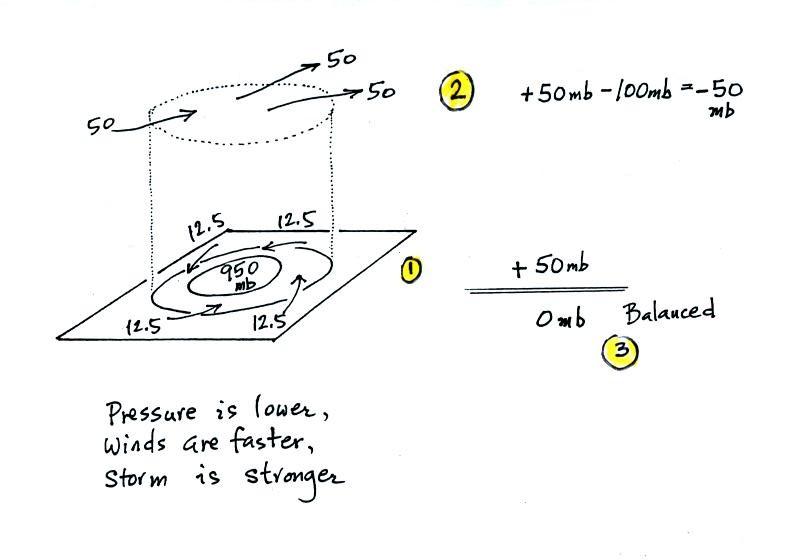 50
50
50
2
+50mb -100mb = -50
mb
12.5
12.5
950
mb
1
+50mb
12.5
12.5
0mb Balanced
3
Pressure is lower,
winds are faster,
storm is stronger